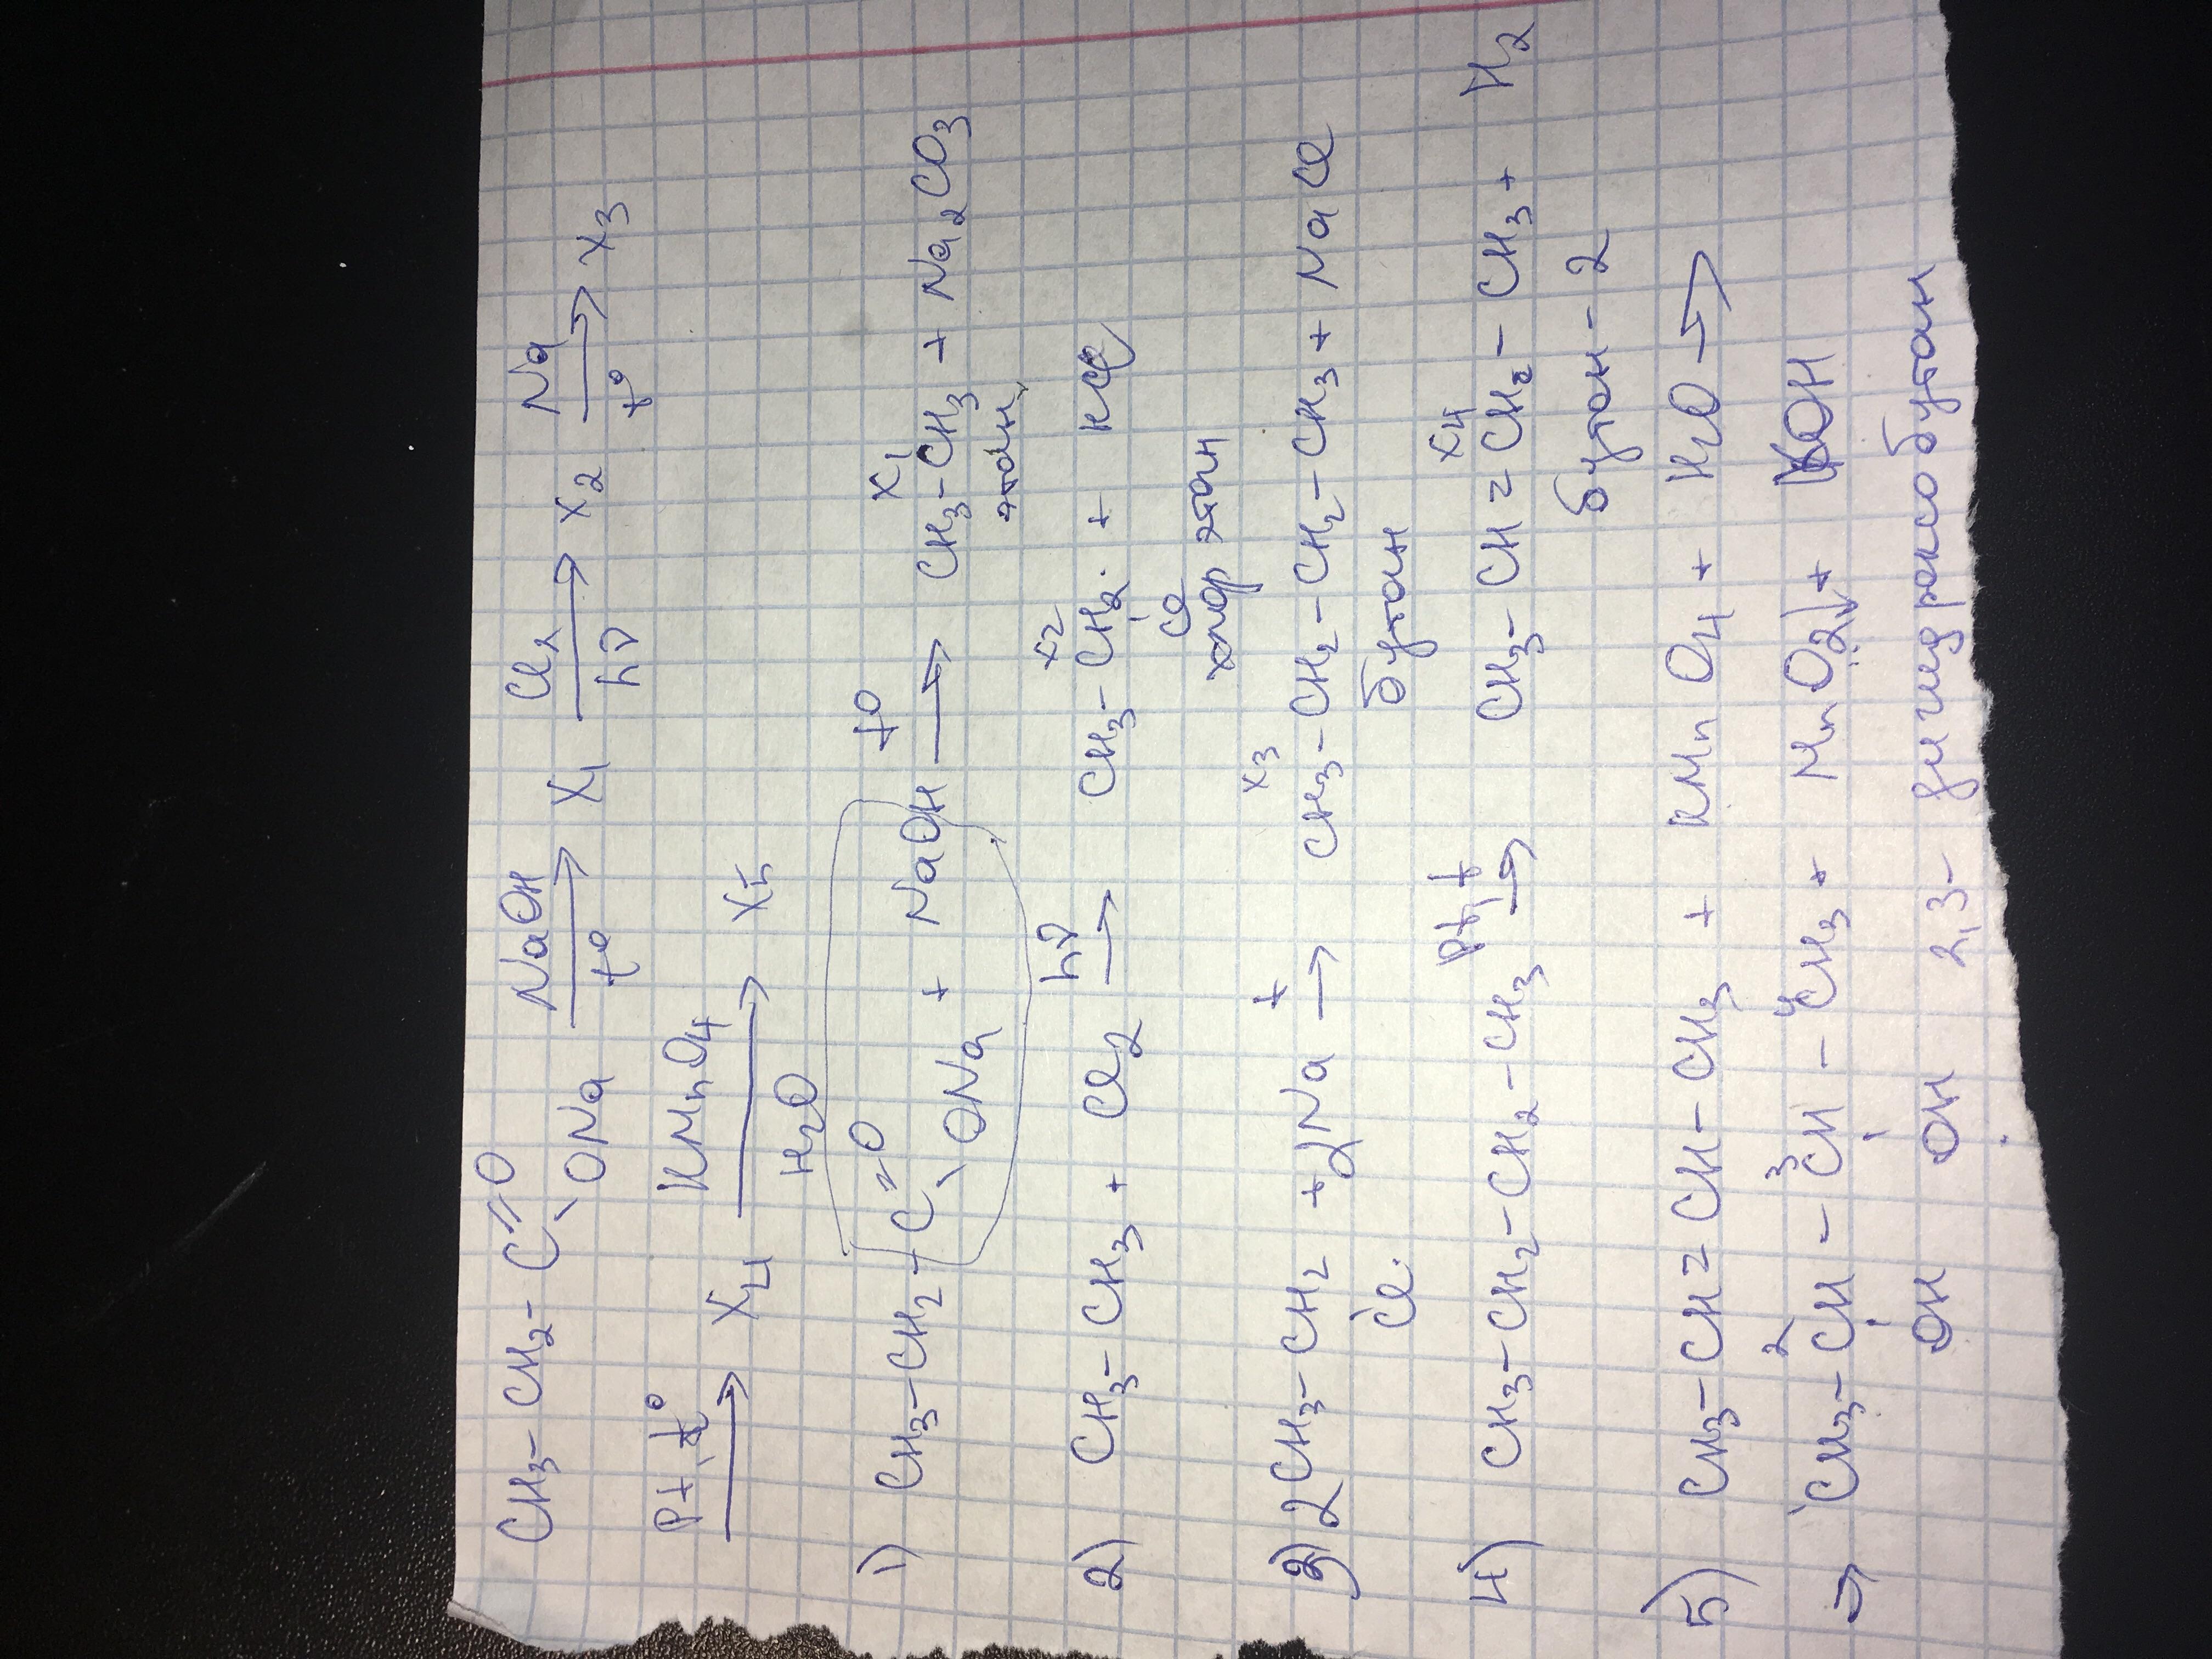 CH3-CH2-C=O ONa NaOH/t° → X1 Cl2/hν → X2 Na/t° → X3
Pt, t° → X4 KMnO4/H2O → X5
1) CH3-CH2-C=O ONa + NaOH t° → X1 CH3-CH3 + Na2CO3
этан
2) CH3-CH3 + Cl2 hν → X2 CH3-CH2 Cl + HCl
хлор этан
3) 2CH3-CH2 Cl + 2Na t → X3 CH3-CH2-CH2-CH3 + NaCl
бутан
4) CH3-CH2-CH2-CH3 Pt, t → X4 CH3-CH=CH2-CH3 + H2
бутен-2
5) CH3-CH=CH-CH3 + KMnO4 + H2O →
→ CH3-2CH-3CH-4CH3 + MnO2↓ + KOH
OH OH 2,3-дигидроксобутан